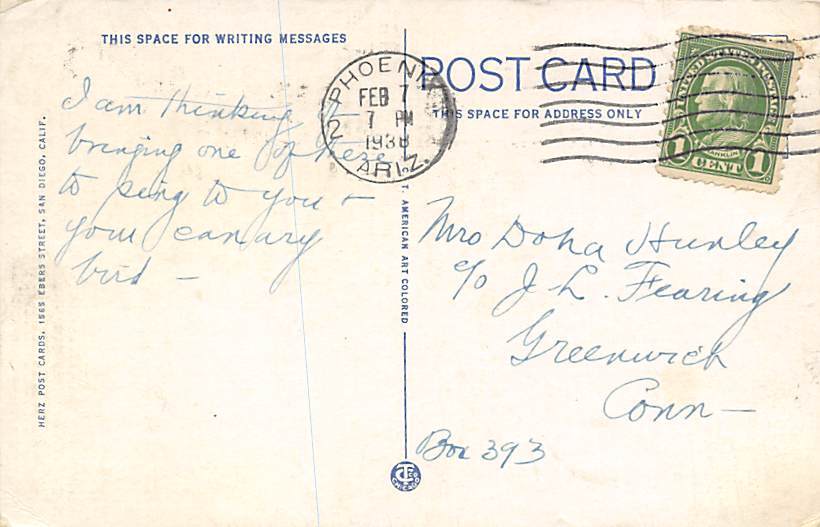 THIS SPACE FOR WRITING MESSAGES
I am thinking of
bringing one of these
to sing to you &
your canary
bird —
HERZ POST CARDS, 1565 EBERS STREET, SAN DIEGO, CALIF.
PHOENIX
FEB 7
7 PM
1938
ARIZ.
2
C. T. AMERICAN ART COLORED
POST CARD
THIS SPACE FOR ADDRESS ONLY
UNITED STATES POSTAGE
FRANKLIN
1 CENT 1
Mrs Dona Hunley
c/o J. L. Fearing
Greenwich
Conn —
Box 393
CHICAGO